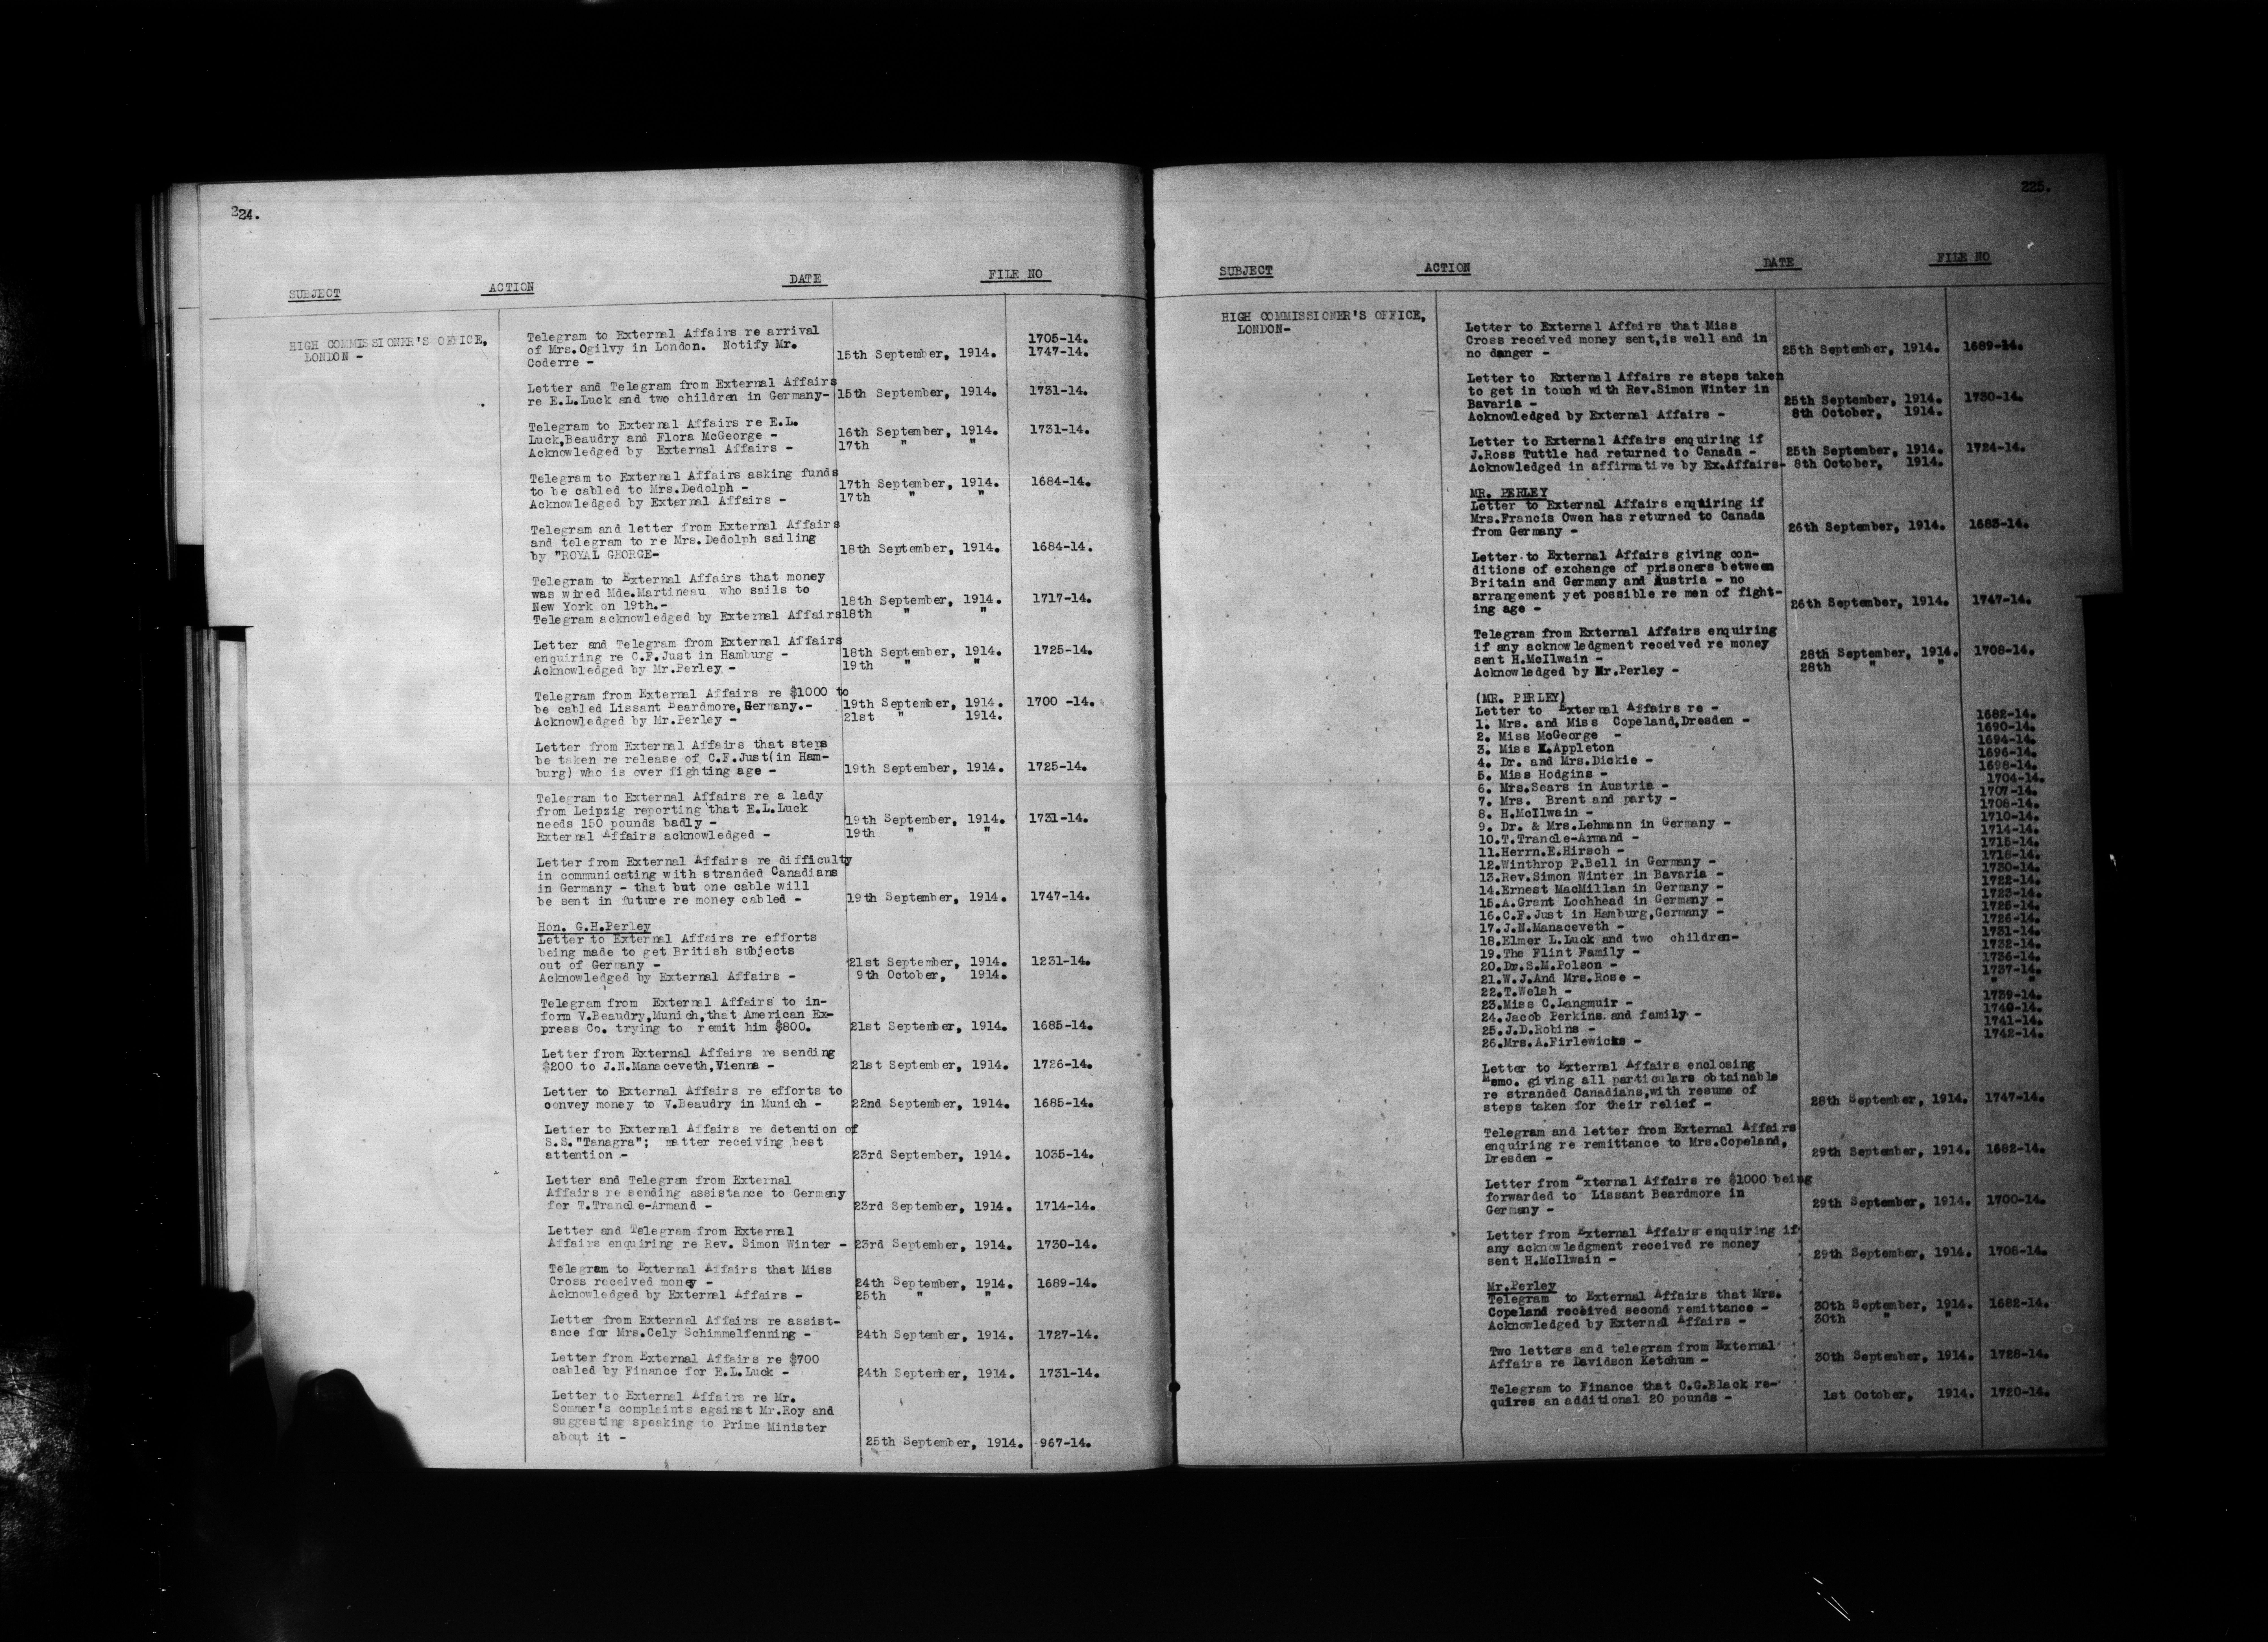 224.
SUBJECT ACTION DATE FILE NO
HIGH COMMISSIONER'S OFFICE,
LONDON -
Telegram to External Affairs re arrival 1705-14.
of Mrs.Ogilvy in London. Notify Mr. 15th September, 1914. 1747-14.
Coderre -
Letter and Telegram from External Affairs
re E.L.Luck and two children in Germany- 15th September, 1914. 1731-14.
Telegram to External Affairs re E.L.
Luck,Beaudry and Flora McGeorge - 16th September, 1914. 1731-14.
Acknowledged by External Affairs - 17th " "
Telegram to External Affairs asking funds
to be cabled to Mrs.Dedolph - 17th September, 1914. 1684-14.
Acknowledged by External Affairs - 17th " "
Telegram and letter from External Affairs
and telegram to re Mrs.Dedolph sailing
by "ROYAL GEORGE- 18th September, 1914. 1684-14.
Telegram to External Affairs that money
was wired Mde.Martineau who sails to
New York on 19th.- 18th September, 1914. 1717-14.
Telegram acknowledged by External Affairs 18th " "
Letter and Telegram from External Affairs
enquiring re C.F.Just in Hamburg - 18th September, 1914. 1725-14.
Acknowledged by Mr.Perley - 19th " "
Telegram from External Affairs re $1000 to
be cabled Lissant Beardmore,Germany.- 19th September, 1914. 1700 -14.
Acknowledged by Mr.Perley - 21st " 1914.
Letter from External Affairs that steps
be taken re release of C.F.Just(in Ham-
burg) who is over fighting age - 19th September, 1914. 1725-14.
Telegram to External Affairs re a lady
from Leipzig reporting that E.L.Luck
needs 150 pounds badly - 19th September, 1914. 1731-14.
External Affairs acknowledged - 19th " "
Letter from External Affairs re difficulty
in communicating with stranded Canadians
in Germany - that but one cable will
be sent in future re money cabled - 19th September, 1914. 1747-14.
Hon. G.H.Perley
Letter to External Affairs re efforts
being made to get British subjects
out of Germany - 21st September, 1914. 1231-14.
Acknowledged by External Affairs - 9th October, 1914.
Telegram from External Affairs to in-
form V.Beaudry,Munich,that American Ex-
press Co. trying to remit him $800. 21st September, 1914. 1685-14.
Letter from External Affairs re sending
$200 to J.N.Manaceveth,Vienna - 21st September, 1914. 1726-14.
Letter to External Affairs re efforts to
convey money to V.Beaudry in Munich - 22nd September, 1914. 1685-14.
Letter to External Affairs re detention of
S.S."Tanagra"; matter receiving best
attention - 23rd September, 1914. 1035-14.
Letter and Telegram from External
Affairs re sending assistance to Germany
for T.Trancle-Armand - 23rd September, 1914. 1714-14.
Letter and Telegram from External
Affairs enquiring re Rev. Simon Winter - 23rd September, 1914. 1730-14.
Telegram to External Affairs that Miss
Cross received money - 24th September, 1914. 1689-14.
Acknowledged by External Affairs - 25th " "
Letter from External Affairs re assist-
ance for Mrs.Cely Schimmelfenning - 24th September, 1914. 1727-14.
Letter from External Affairs re $700
cabled by Finance for E.L.Luck - 24th September, 1914. 1731-14.
Letter to External Affairs re Mr.
Sommer's complaints against Mr.Roy and
suggesting speaking to Prime Minister
about it - 25th September, 1914. 967-14.
225.
SUBJECT ACTION DATE FILE NO
HIGH COMMISSIONER'S OFFICE,
LONDON-
Letter to External Affairs that Miss
Cross received money sent,is well and in
no danger - 25th September, 1914. 1689-14.
Letter to External Affairs re steps taken
to get in touch with Rev.Simon Winter in
Bavaria - 25th September, 1914. 1730-14.
Acknowledged by External Affairs - 8th October, 1914.
Letter to External Affairs enquiring if
J.Ross Tuttle had returned to Canada - 25th September, 1914. 1724-14.
Acknowledged in affirmative by Ex.Affairs- 8th October, 1914.
MR. PERLEY
Letter to External Affairs enquiring if
Mrs.Francis Owen has returned to Canada
from Germany - 26th September, 1914. 1683-14.
Letter to External Affairs giving con-
ditions of exchange of prisoners between
Britain and Germany and Austria - no
arrangement yet possible re men of fight-
ing age - 26th September, 1914. 1747-14.
Telegram from External Affairs enquiring
if any acknowledgment received re money
sent H.McIlwain - 28th September, 1914. 1708-14.
Acknowledged by Mr.Perley - 28th " "
(MR. PERLEY)
Letter to External Affairs re -
1. Mrs. and Miss Copeland,Dresden - 1682-14.
2. Miss McGeorge - 1690-14.
3. Miss K.Appleton 1694-14.
4. Dr. and Mrs.Dickie - 1696-14.
5. Miss Hodgins - 1698-14.
6. Mrs.Sears in Austria - 1704-14.
7. Mrs. Brent and party - 1707-14.
8. H.McIlwain - 1708-14.
9. Dr. & Mrs.Lehmann in Germany - 1710-14.
10.T.Trancle-Armand - 1714-14.
11.Herrn.E.Hirsch - 1715-14.
12.Winthrop P.Bell in Germany - 1718-14.
13.Rev.Simon Winter in Bavaria - 1730-14.
14.Ernest MacMillan in Germany - 1722-14.
15.A.Grant Lochhead in Germany - 1723-14.
16.C.F.Just in Hamburg,Germany - 1725-14.
17.J.N.Manaceveth - 1726-14.
18.Elmer L.Luck and two children- 1731-14.
19.The Flint Family - 1732-14.
20.Dr.S.M.Polson - 1736-14.
21.W.J.And Mrs.Rose - 1737-14.
22.T.Welsh - " "
23.Miss C.Langmuir - 1739-14.
24.Jacob Perkins and family - 1740-14.
25.J.D.Robins - 1741-14.
26.Mrs.A.Firlewicks - 1742-14.
Letter to External Affairs enclosing
Memo. giving all particulars obtainable
re stranded Canadians,with resume of
steps taken for their relief - 28th September, 1914. 1747-14.
Telegram and letter from External Affairs
enquiring re remittance to Mrs.Copeland,
Dresden - 29th September, 1914. 1682-14.
Letter from External Affairs re $1000 being
forwarded to Lissant Beardmore in
Germany - 29th September, 1914. 1700-14.
Letter from External Affairs enquiring if
any acknowledgment received re money
sent H.McIlwain - 29th September, 1914. 1708-14.
Mr.Perley
Telegram to External Affairs that Mrs.
Copeland received second remittance - 30th September, 1914. 1682-14.
Acknowledged by External Affairs - 30th " "
Two letters and telegram from External
Affairs re Davidson Ketchum - 30th September, 1914. 1728-14.
Telegram to Finance that C.G.Black re-
quires an additional 20 pounds - 1st October, 1914. 1720-14.